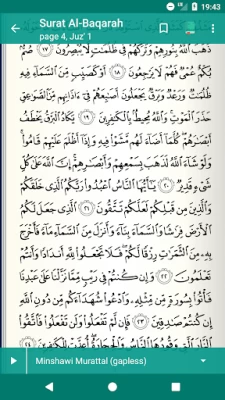 19:43
Surat Al-Baqarah
page 4, Juz' 1
ذَهَبَ ٱللَّهُ بِنُورِهِمْ وَتَرَكَهُمْ فِى ظُلُمَـٰتٍ لَّا يُبْصِرُونَ ١٧
صُمٌّۢ بُكْمٌ عُمْىٌ فَهُمْ لَا يَرْجِعُونَ ١٨ أَوْ كَصَيِّبٍ مِّنَ ٱلسَّمَآءِ فِيهِ
ظُلُمَـٰتٌ وَرَعْدٌ وَبَرْقٌ يَجْعَلُونَ أَصَـٰبِعَهُمْ فِىٓ ءَاذَانِهِم مِّنَ ٱلصَّوَٰعِقِ
حَذَرَ ٱلْمَوْتِ وَٱللَّهُ مُحِيطٌۢ بِٱلْكَـٰفِرِينَ ١٩ يَكَادُ ٱلْبَرْقُ يَخْطَفُ
أَبْصَـٰرَهُمْ كُلَّمَآ أَضَآءَ لَهُم مَّشَوْا۟ فِيهِ وَإِذَآ أَظْلَمَ عَلَيْهِمْ قَامُوا۟
وَلَوْ شَآءَ ٱللَّهُ لَذَهَبَ بِسَمْعِهِمْ وَأَبْصَـٰرِهِمْ إِنَّ ٱللَّهَ عَلَىٰ كُلِّ
شَىْءٍ قَدِيرٌ ٢٠ يَـٰٓأَيُّهَا ٱلنَّاسُ ٱعْبُدُوا۟ رَبَّكُمُ ٱلَّذِى خَلَقَكُمْ
وَٱلَّذِينَ مِن قَبْلِكُمْ لَعَلَّكُمْ تَتَّقُونَ ٢١ ٱلَّذِى جَعَلَ لَكُمُ
ٱلْأَرْضَ فِرَٰشًا وَٱلسَّمَآءَ بِنَآءً وَأَنزَلَ مِنَ ٱلسَّمَآءِ مَآءً فَأَخْرَجَ
بِهِۦ مِنَ ٱلثَّمَرَٰتِ رِزْقًا لَّكُمْ فَلَا تَجْعَلُوا۟ لِلَّهِ أَندَادًا وَأَنتُمْ
تَعْلَمُونَ ٢٢ وَإِن كُنتُمْ فِى رَيْبٍ مِّمَّا نَزَّلْنَا عَلَىٰ عَبْدِنَا
فَأْتُوا۟ بِسُورَةٍ مِّن مِّثْلِهِۦ وَٱدْعُوا۟ شُهَدَآءَكُم مِّن دُونِ ٱللَّهِ
إِن كُنتُمْ صَـٰدِقِينَ ٢٣ فَإِن لَّمْ تَفْعَلُوا۟ وَلَن تَفْعَلُوا۟ فَٱتَّقُوا۟
ٱلنَّارَ ٱلَّتِى وَقُودُهَا ٱلنَّاسُ وَٱلْحِجَارَةُ أُعِدَّتْ لِلْكَـٰفِرِينَ
Minshawi Murattal (gapless)